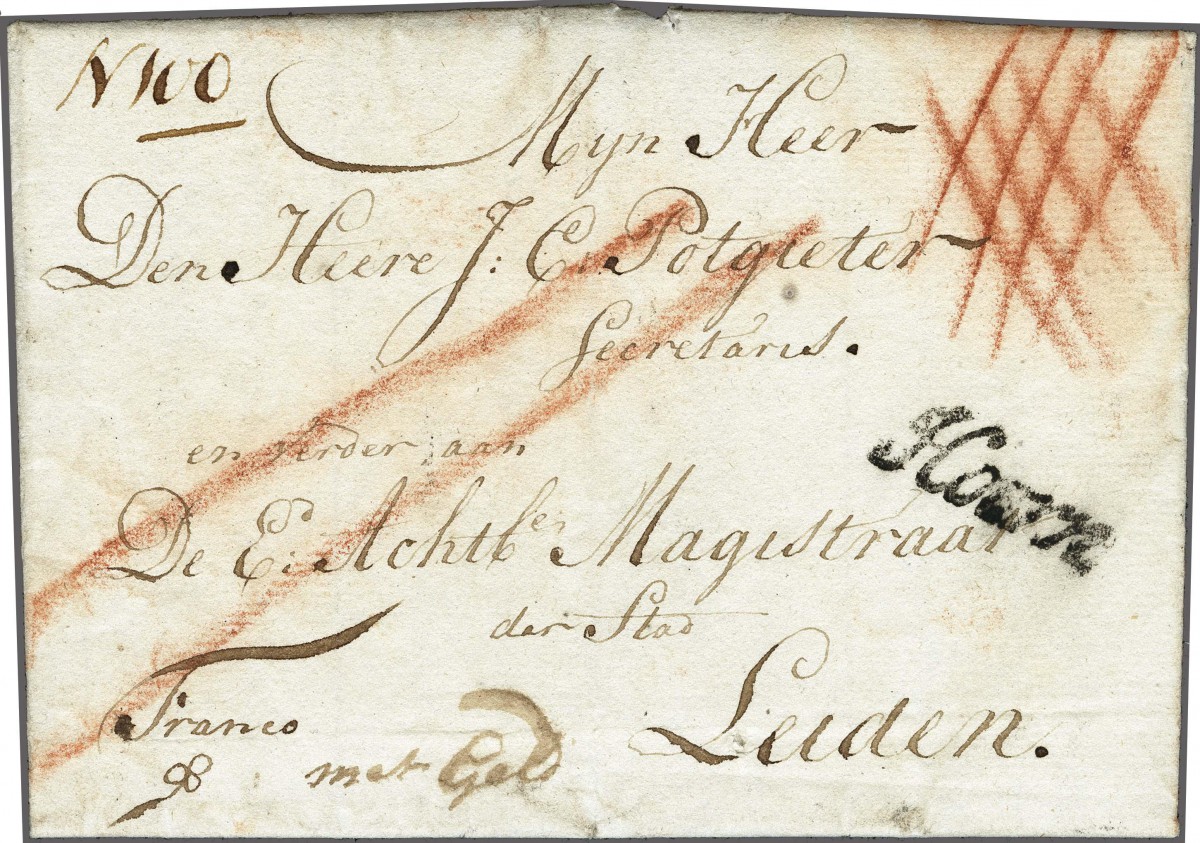 N 100
Myn Heer
Den Heere J: C. Potgieter
Secretaris.
en verder aan
De E: Achtb:en Magistraat
Hoorn
der Stad
Leiden.
Franco
met Geld